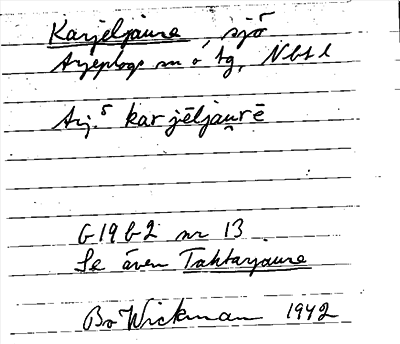 Karjeljaure, sjö
Arjeplogs sn o tg, Nbtl
Arj.⁵ karjēljau̯rē
G1962 nr 13
Se även Tahtarjaure
Bo Wickman 1942